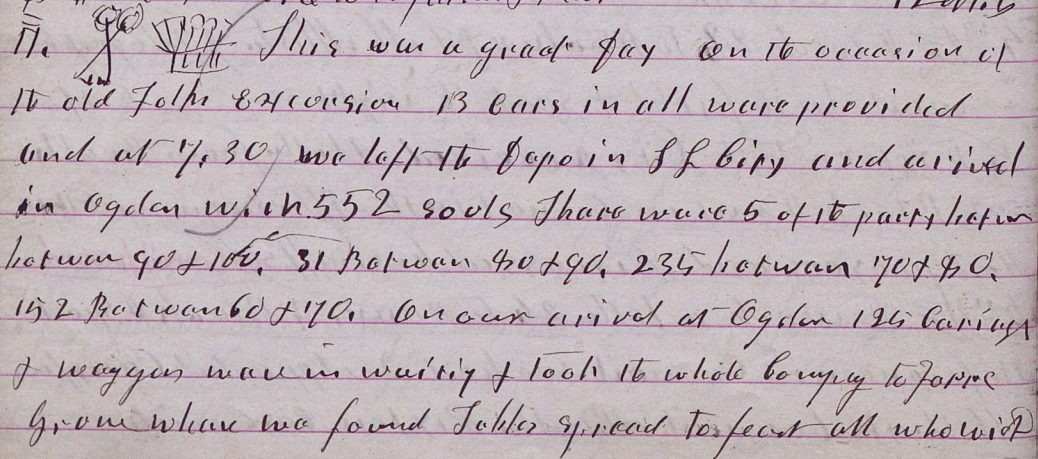 11. This was a great Day on the occasion of
the old Folks Excursion 13 cars in all ware provided
and at 7.30 we left the Depo in S L City and arived
in Ogden with 552 souls Thare ware 5 of the party
betwen 90 & 100. 31 Betwen 80 & 90. 235 betwen 70 & 80.
152 Betwen 60 & 70. On our arival at Ogden 125 Cariags
& waggons ware in waitig & took the whole Compay to
Grove whare we found Tables spread to feast all who